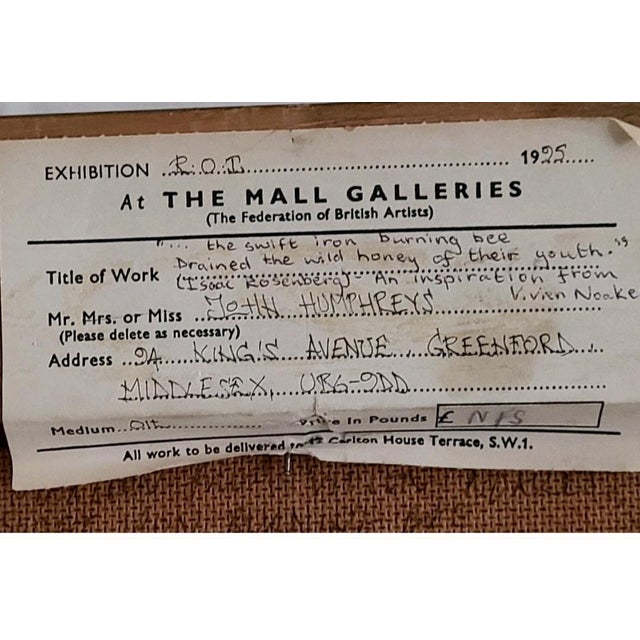 EXHIBITION ..R.O.I............ 1995.....
At THE MALL GALLERIES
(The Federation of British Artists)
"... the swift iron burning bee
Drained the wild honey of their youth."
Title of Work (Isaac Rosenberg) - An inspiration from
Vivien Noake
Mr. Mrs. or Miss JOHN HUMPHREYS
(Please delete as necessary)
Address 9A KING'S AVENUE GREENFORD
MIDDLESEX, UB6-9DD
Medium Oil Price in Pounds £ NFS
All work to be delivered to 17 Carlton House Terrace, S.W.1.